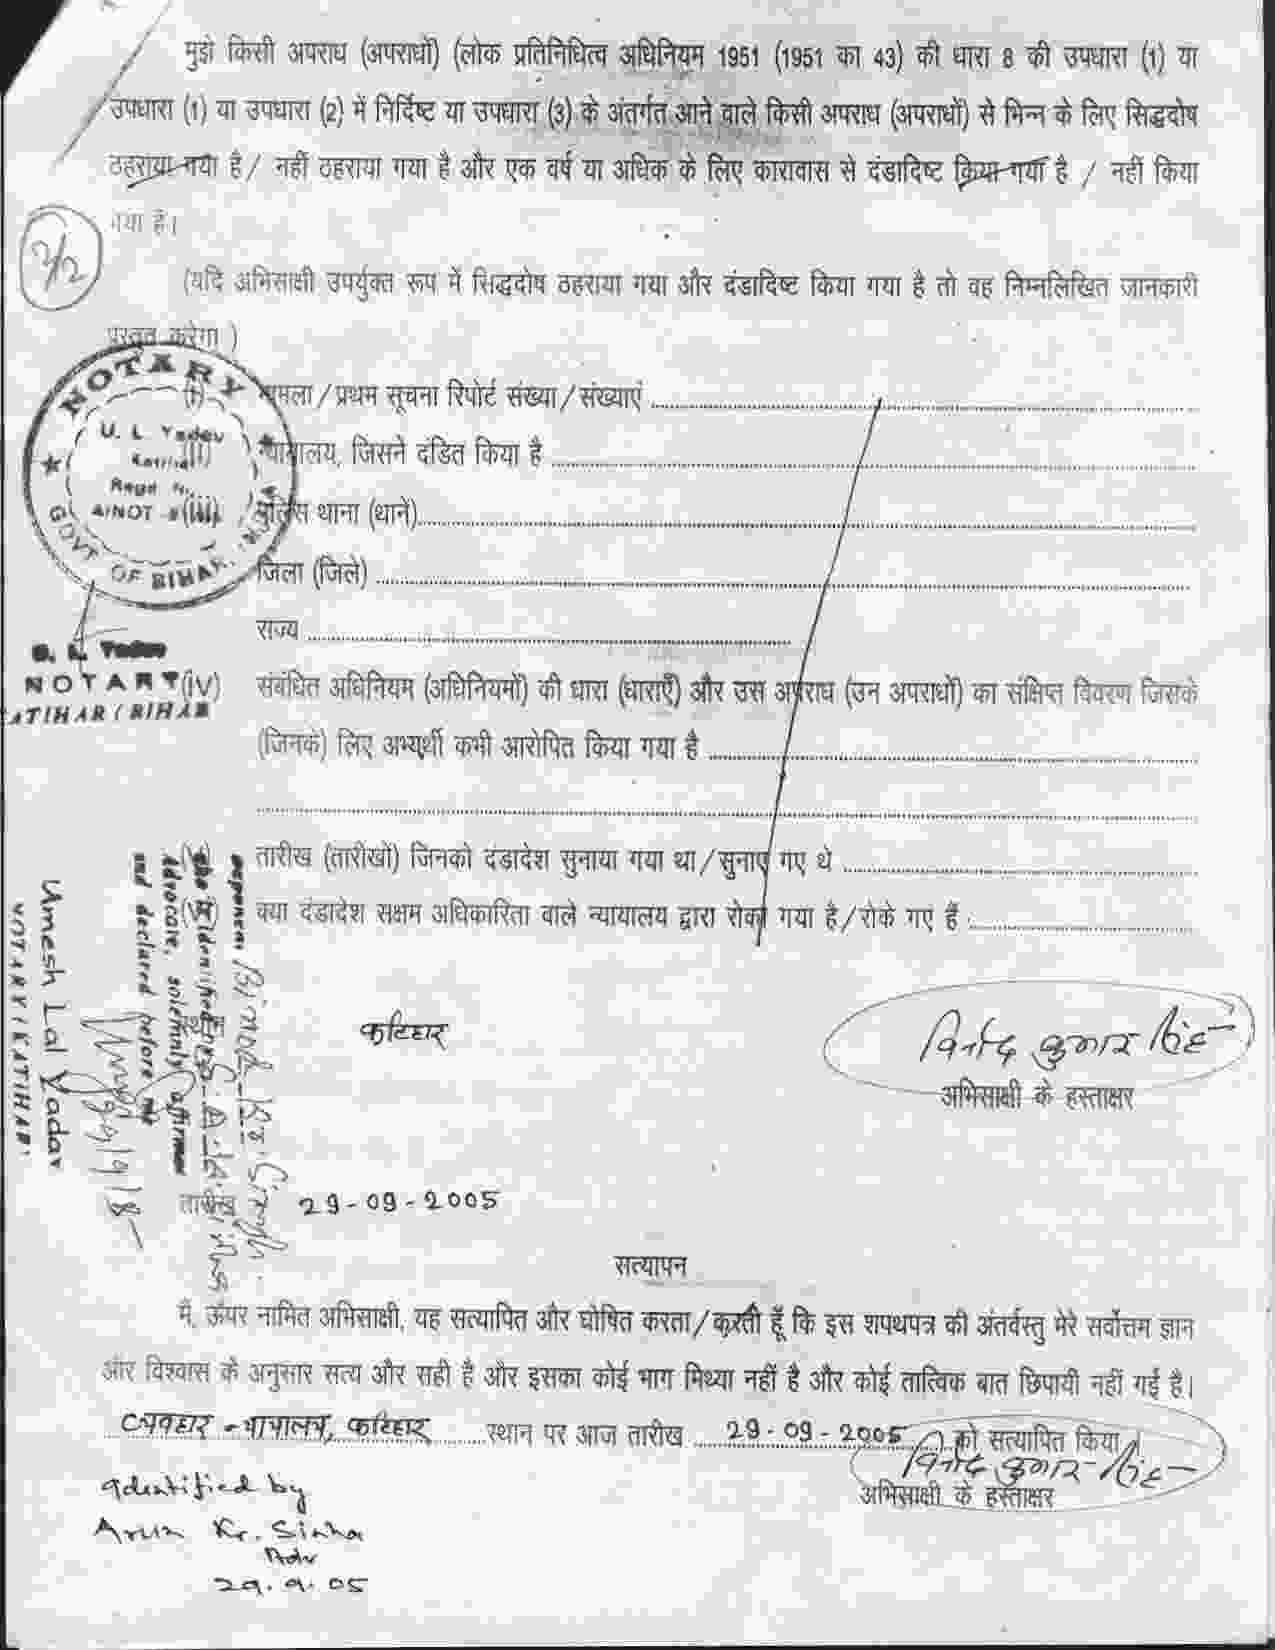 मुझे किसी अपराध (अपराधों) (लोक प्रतिनिधित्व अधिनियम 1951 (1951 का 43) की धारा 8 की उपधारा (1) या
उपधारा (1) या उपधारा (2) में निर्दिष्ट या उपधारा (3) के अंतर्गत आने वाले किसी अपराध (अपराधों) से भिन्न के लिए सिद्धदोष
ठहराया गया है / नहीं ठहराया गया है और एक वर्ष या अधिक के लिए कारावास से दंडादिष्ट किया गया है / नहीं किया
गया है।
2/2
(यदि अभिसाक्षी उपर्युक्त रूप में सिद्धदोष ठहराया गया और दंडादिष्ट किया गया है तो वह निम्नलिखित जानकारी
प्रस्तुत करेगा)
NOTARY
U. L. Yadav
Katihar
Regd No.
GOVT OF BIHAR
(i) मामला/प्रथम सूचना रिपोर्ट संख्या/संख्याएं
(ii) न्यायालय, जिसने दंडित किया है
(iii) पुलिस थाना (थाने)
जिला (जिले)
राज्य
U. L. Yadav
NOTARY
KATIHAR (BIHAR
(iv) संबंधित अधिनियम (अधिनियमों) की धारा (धाराएँ) और उस अपराध (उन अपराधों) का संक्षिप्त विवरण जिसके
(जिनके) लिए अभ्यर्थी कभी आरोपित किया गया है
(v) तारीख (तारीखों) जिनको दंडादेश सुनाया गया था/सुनाए गए थे
(vi) क्या दंडादेश सक्षम अधिकारिता वाले न्यायालय द्वारा रोका गया है/रोके गए हैं :
deponent Binod Kr. Singh
who is identified by
Advocate, solemnly affirmed
and declared before me
Umesh Lal Yadav
NOTARY (KATIHAR)
स्थान कटिहार
विनोद कुमार सिंह
अभिसाक्षी के हस्ताक्षर
तारीख 29-09-2005
सत्यापन
मैं, ऊपर नामित अभिसाक्षी, यह सत्यापित और घोषित करता/करती हूँ कि इस शपथपत्र की अंतर्वस्तु मेरे सर्वोत्तम ज्ञान
और विश्वास के अनुसार सत्य और सही है और इसका कोई भाग मिथ्या नहीं है और कोई तात्विक बात छिपायी नहीं गई है।
व्यवहार न्यायालय, कटिहार स्थान पर आज तारीख 29-09-2005 को सत्यापित किया।
विनोद कुमार सिंह
अभिसाक्षी के हस्ताक्षर
Identified by
Arun Kr. Sinha
Adv
29.9.05